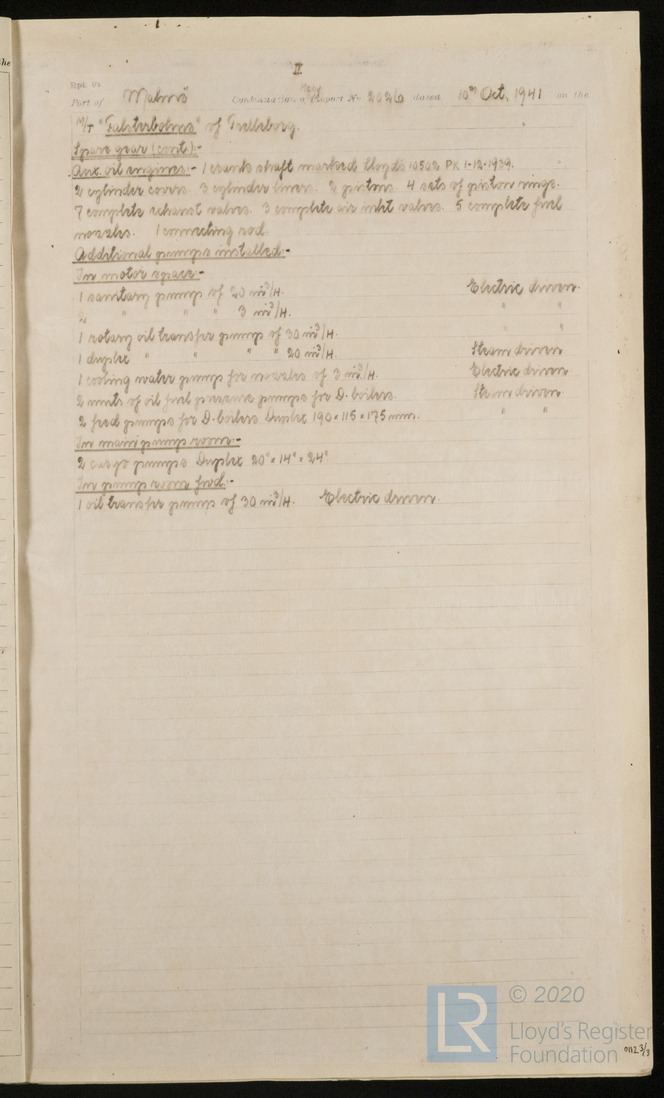 II
Rpt. 9a.
Port of Malmö Continuation of Report No. 2026 dated 10th Oct, 1941 on the
M/T "Falsterbohus" of Trelleborg.
Spare gear (cont):-
Aux. oil engines:- 1 crank shaft marked Lloyds 10502 PK 1-12-1939.
2 cylinder covers 3 cylinder liners. 2 pistons. 4 sets of piston rings.
7 complete exhaust valves. 3 complete air inlet valves. 5 complete fuel
nozzles. 1 connecting rod.
Additional pumps installed:-
In motor space:-
1 sanitary pump of 20 m³/H. Electric driven.
2 " " " 3 m³/H. " "
1 rotary oil transfer pump of 30 m³/H. " "
1 duplex " " " " 20 m³/H. Steam driven
1 cooling water pump for nozzles of 3 m³/H. Electric driven
2 units of oil fuel pressure pumps for D. boilers. Steam driven
2 feed pumps for D. boilers Duplex 190 × 115 × 175 mm. " "
In main pump room:-
2 cargo pumps Duplex 20" × 14" × 24"
In pump room fwd:-
1 oil transfer pump of 30 m³/H. Electric driven.
© 2020
LR
Lloyd's Register
Foundation
0112 3/3